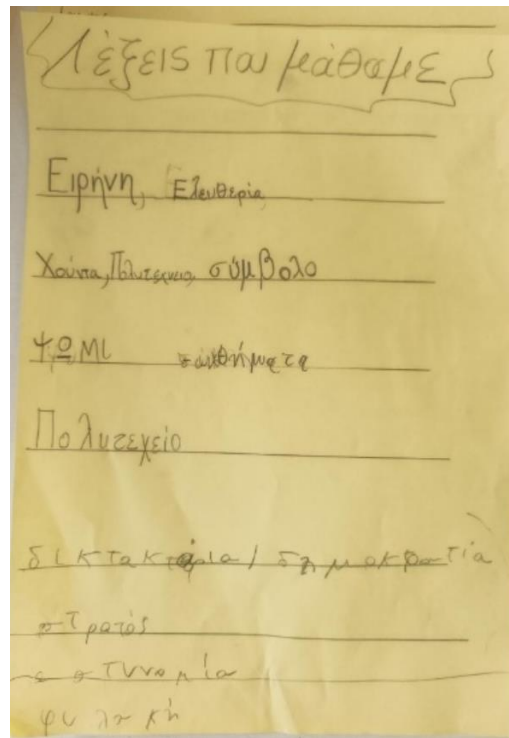 Λέξεις που μάθαμε
Ειρήνη, Ελευθερία,
Χούντα, Πολυτεχνείο, σύμβολο
ΨΩΜΙ συνθήματα
Πολυτεχείο
δικτακτορία / δημοκρατία
στρατός
αστυνομία
φυλακή